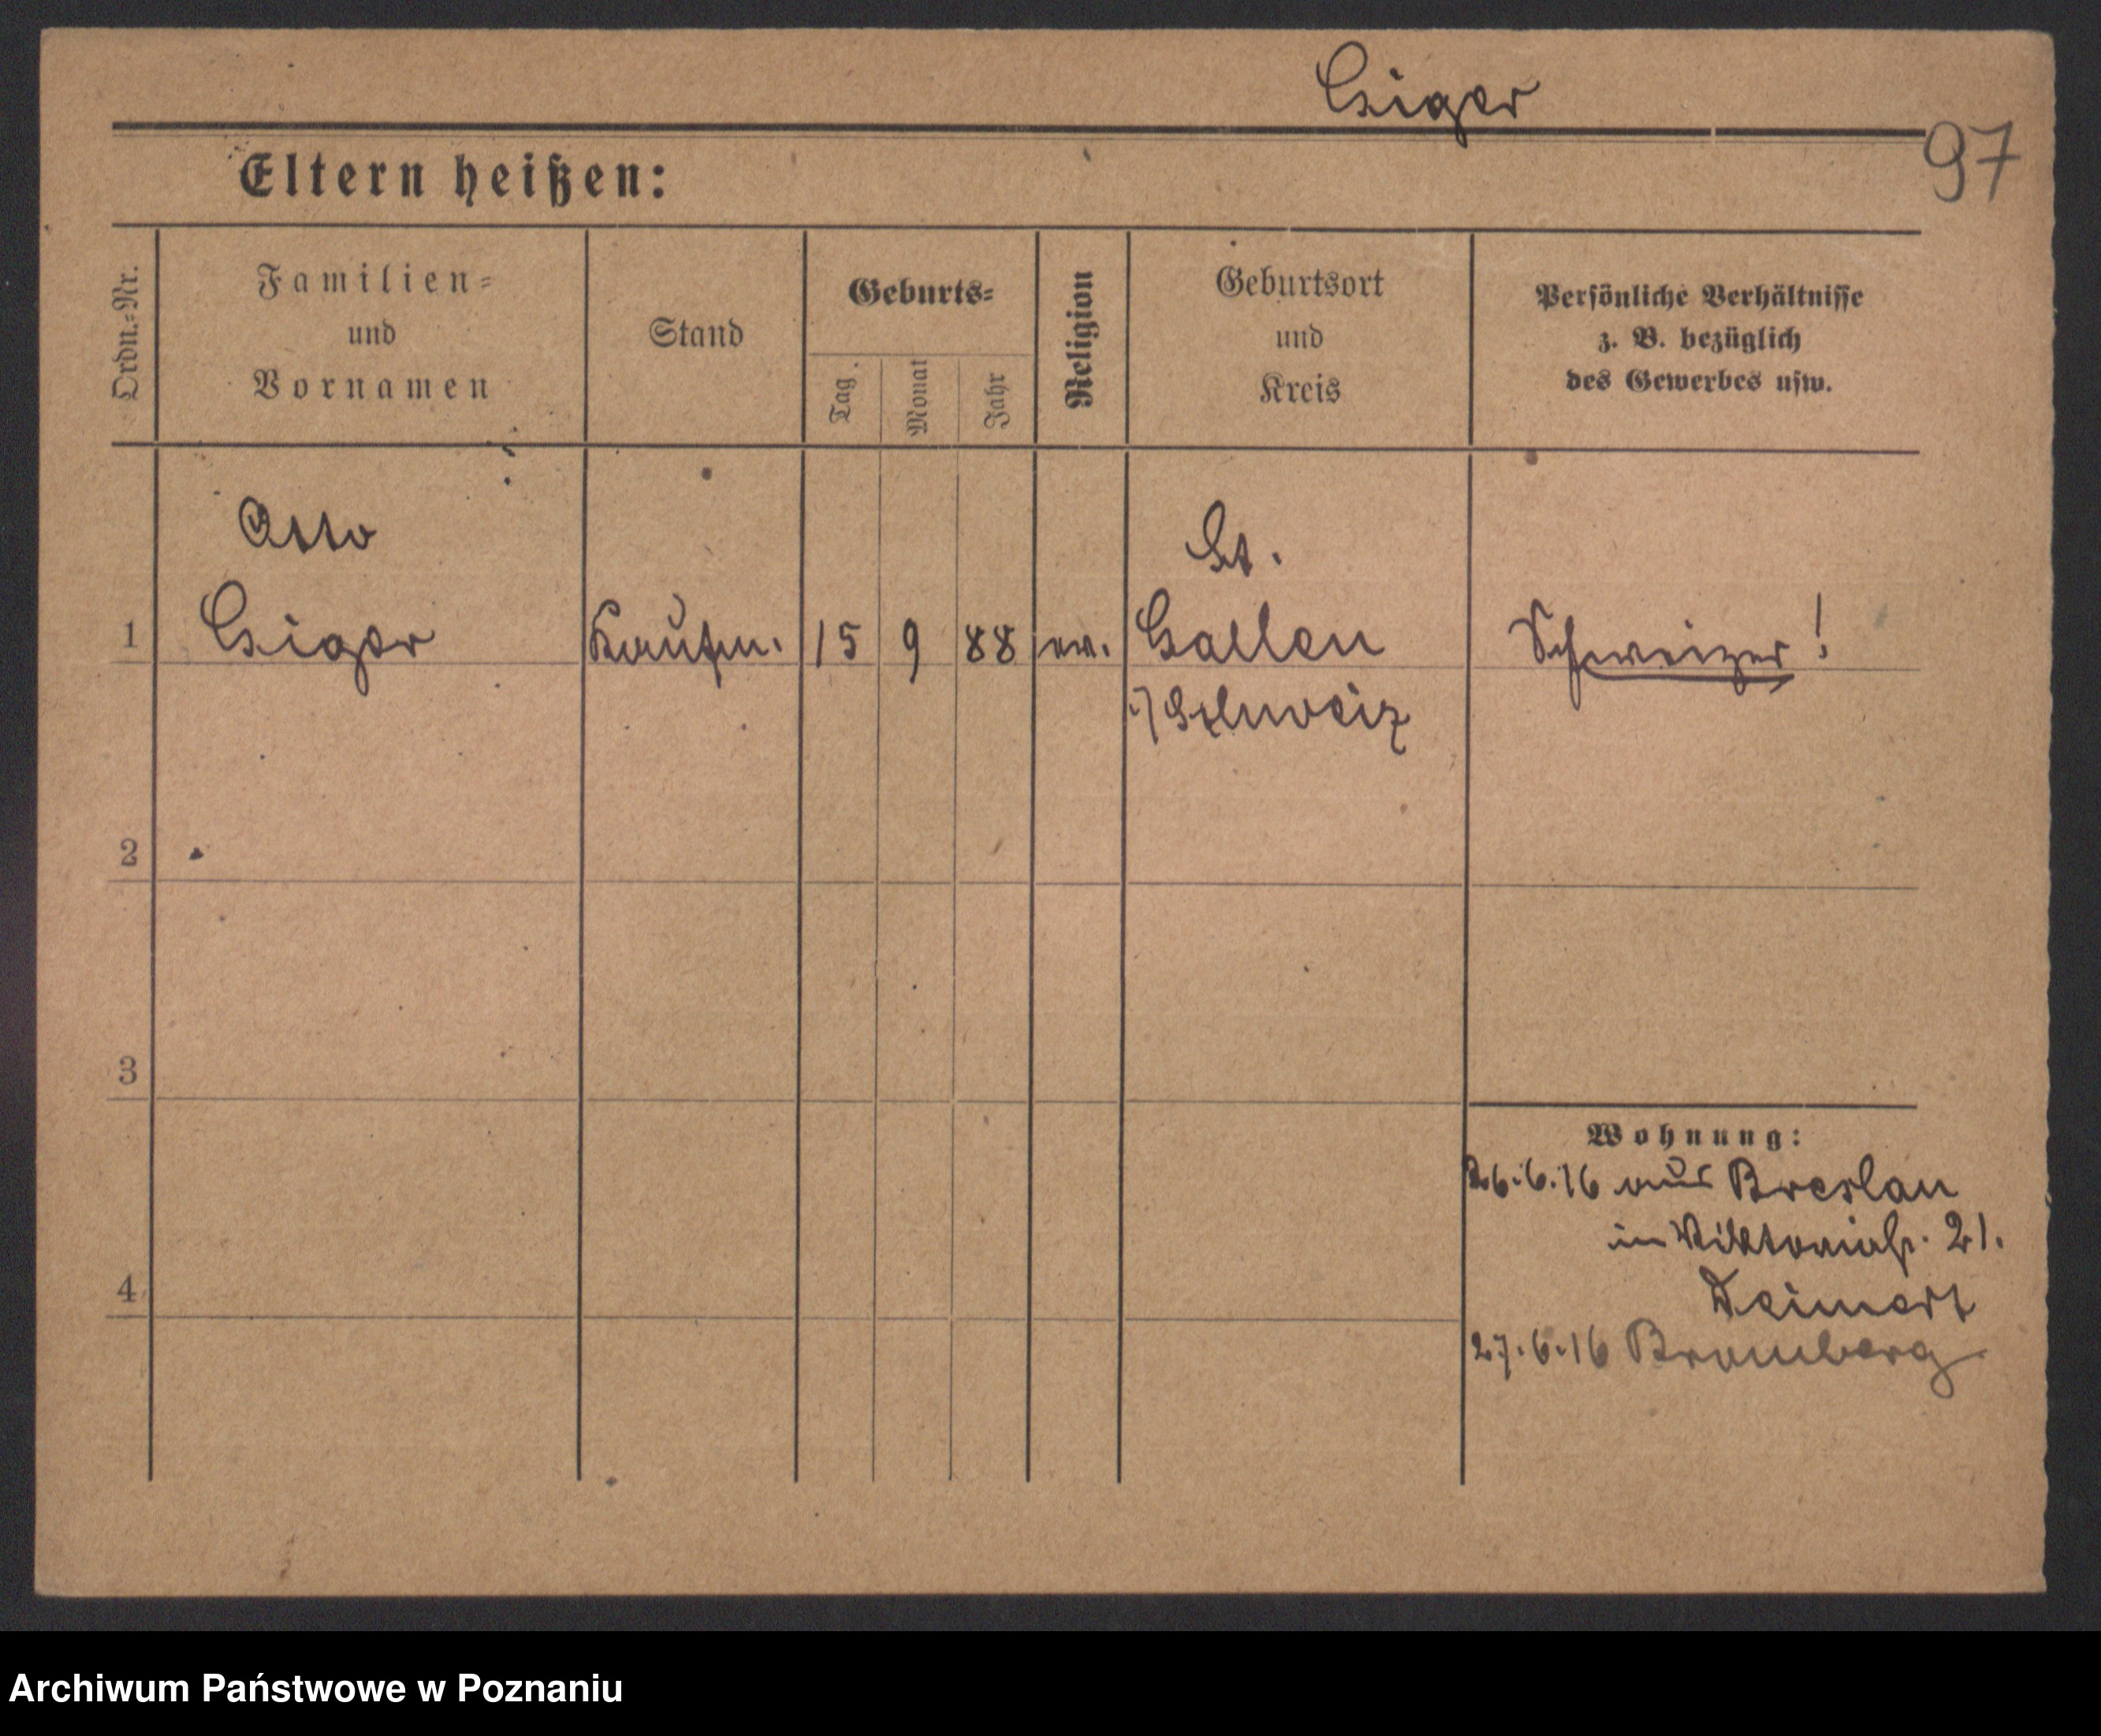 Geiger
97
Eltern heißen:
Ordn.-Nr.
Familien-
und
Vornamen
Stand
Geburts-
Tag.
Monat
Jahr
Religion
Geburtsort
und
Kreis
Persönliche Verhältnisse
z. B. bezüglich
des Gewerbes usw.
Otto
St.
1 Geiger Kaufm. 15 9 88 ev. Gallen Schweizer!
i/Schweiz
2
3
Wohnung:
26.6.16 aus Breslau
in Viktoriastr. 21.
4
27.6.16 Bromberg
Archiwum Państwowe w Poznaniu